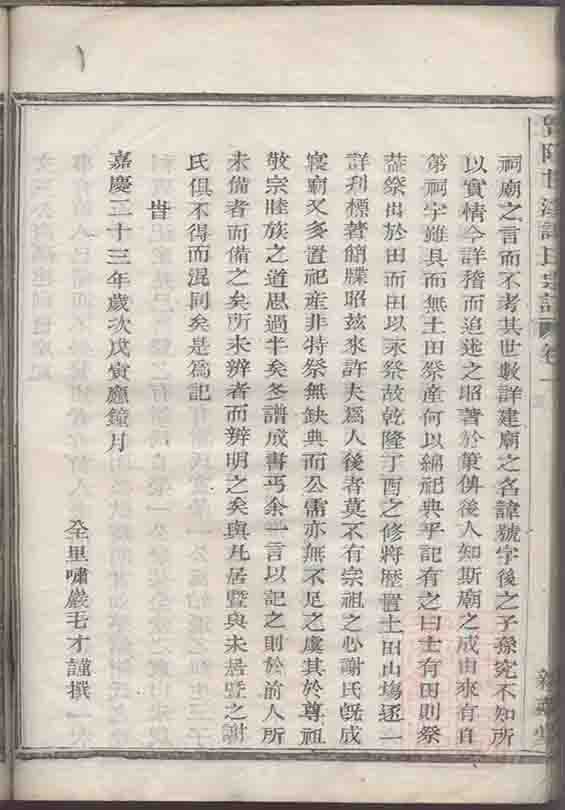 謝氏宗譜 卷一
祠廟之言而不考其世數詳建廟之名諱號字後之子孫究不知所
以實情今詳稽而追述之昭著於篥俾後人知斯廟之成由來有自
第祠宇雖具而無土田祭產何以綿祀典乎記有之曰士有田則祭
葢祭出於田而田以永祭故乾隆丁酉之修將歷置土田山塲逐一
詳列標著簡牒昭玆來許夫爲人後者莫不有宗祖之心謝氏旣成
寢廟又多置祀產非特祭無缺典而公需亦無不足之虞其於尊祖
敬宗睦族之道思過半矣冬譜成書丐余一言以記之則於前人所
未備者而備之矣所未辨者而辨明之矣與凡居暨與未居暨之謝
氏俱不得而混同矣是爲記
旹
嘉慶二十三年歲次戊寅應鐘月
仝里嘯巖毛才謹撰